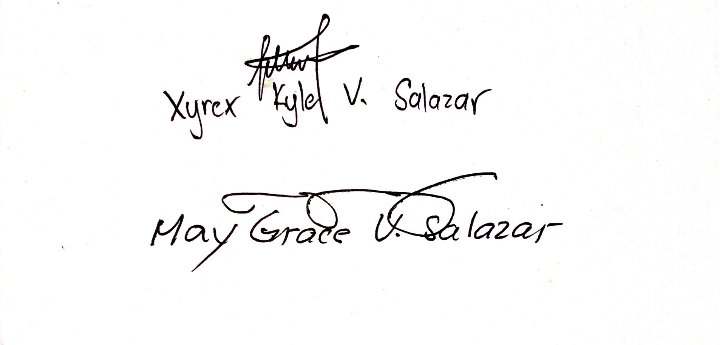 Xyrex Kyle V. Salazar
May Grace V. Salazar